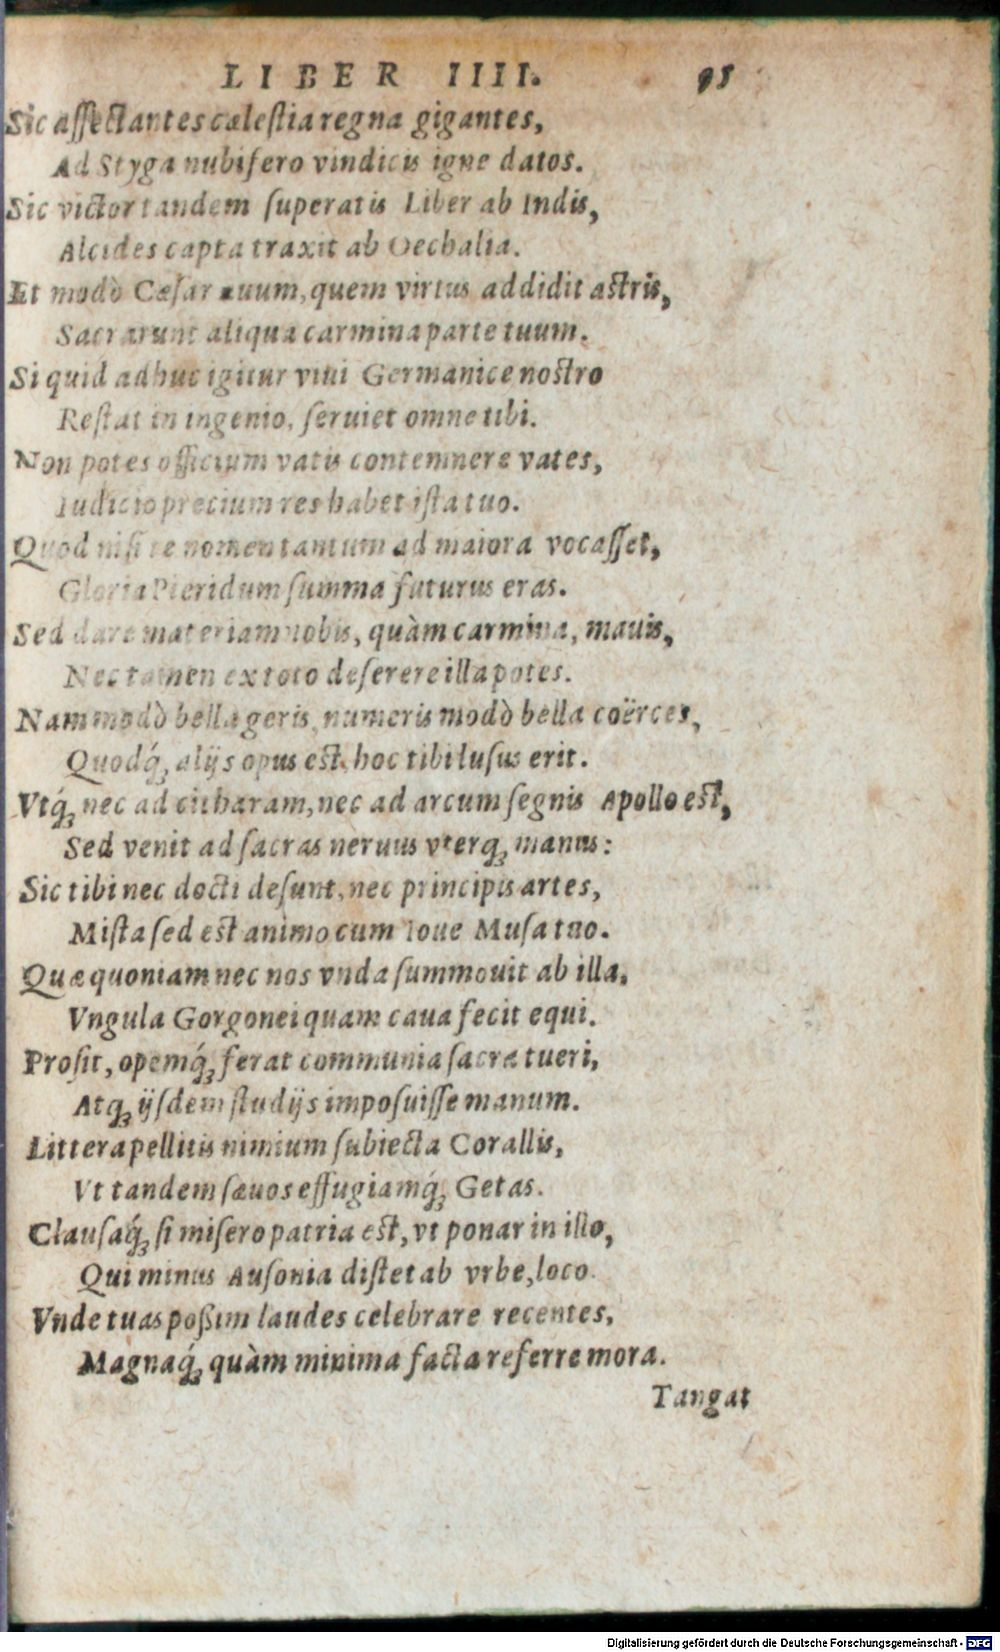 LIBER IIII. 95
Sic affectantes cælestia regna gigantes,
Ad Styga nubifero vindicis igne datos.
Sic victor tandem superatis Liber ab Indis,
Alcides capta traxit ab Oechalia.
Et modò Cæsar auum, quem virtus addidit astris,
Sacrarunt aliqua carmina parte tuum.
Si quid adhuc igitur viui Germanice nostro
Restat in ingenio, seruiet omne tibi.
Non potes officium vatis contemnere vates,
Iudicio precium res habet ista tuo.
Quod nisi te nomen tantum ad maiora vocasset,
Gloria Pieridum summa futurus eras.
Sed dare materiam nobis, quàm carmina, mauis,
Nec tamen ex toto deserere illa potes.
Nam modò bella geris, numeris modò bella coërces,
Quodq́ꝫ alijs opus est, hoc tibi lusus erit.
Vtq́ꝫ nec ad citharam, nec ad arcum segnis Apollo est,
Sed venit ad sacras neruus vterqꝫ manus:
Sic tibi nec docti desunt, nec principis artes,
Mista sed est animo cum Ioue Musa tuo.
Quæ quoniam nec nos vnda summouit ab illa,
Vngula Gorgonei quam caua fecit equi.
Prosit, opemq́ꝫ ferat communia sacra tueri,
Atqꝫ ijsdem studijs imposuisse manum.
Littera pellitis nimium subiecta Corallis,
Vt tandem sæuos effugiamq́ꝫ Getas.
Clausaq́ꝫ si misero patria est, vt ponar in illo,
Qui minus Ausonia distet ab vrbe, loco.
Vnde tuas poßim laudes celebrare recentes,
Magnaq́ꝫ quàm minima facta referre mora.
Tangat
Digitalisierung gefördert durch die Deutsche Forschungsgemeinschaft - DFG